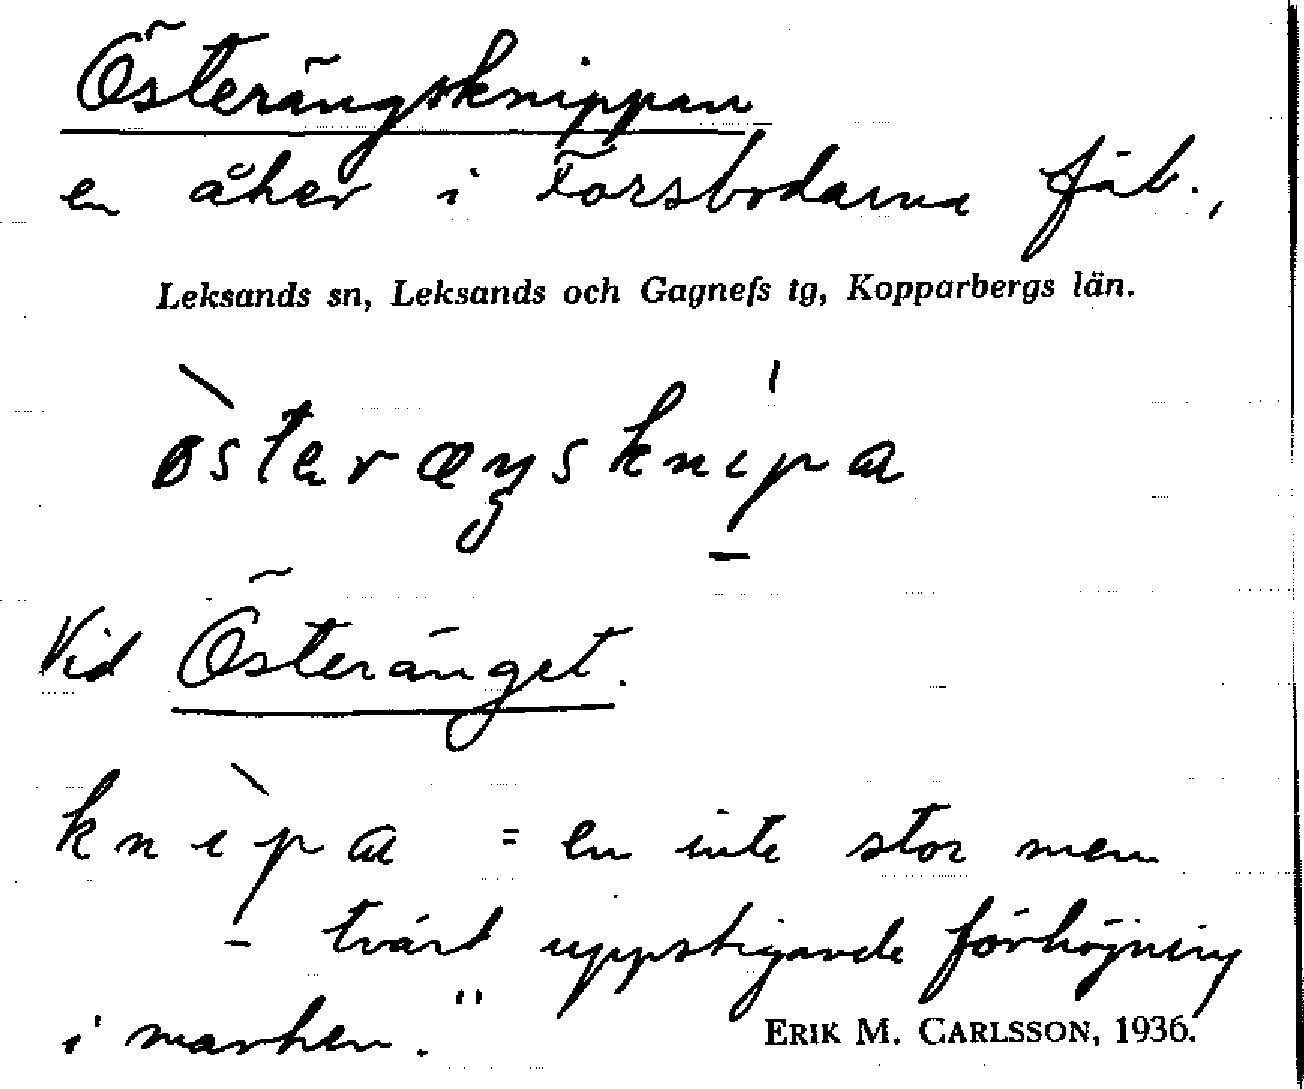 Österängsknippan
en åker i Forsbodarna fäb.,
Leksands sn, Leksands och Gagnefs tg, Kopparbergs län.
ø̀steræŋsknı̍pa
Vid Österänget.
knı̀pa = en inte stor men
tvärt uppstigande förhöjning
i marken."
ERIK M. CARLSSON, 1936.